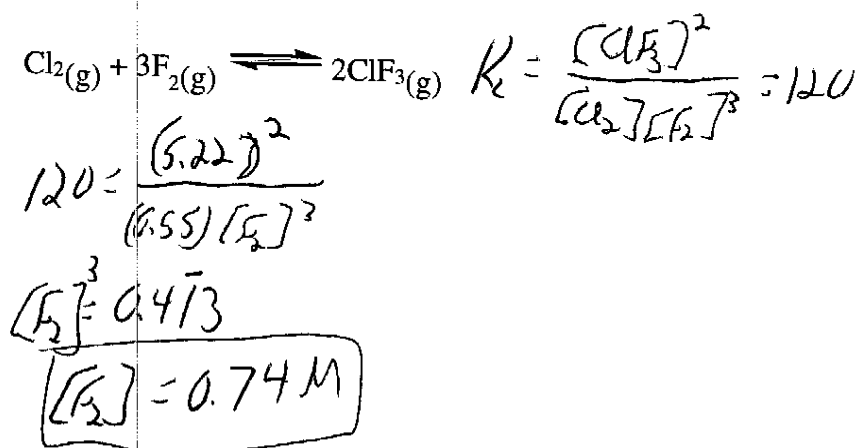 Cl₂(g) + 3F₂(g) ⇌ 2ClF₃(g) Kc = [ClF₃]² / [Cl₂][F₂]³ = 120
120 = (5.22)² / (0.55)[F₂]³
[F₂]³ = 0.41̄3
[F₂] = 0.74 M